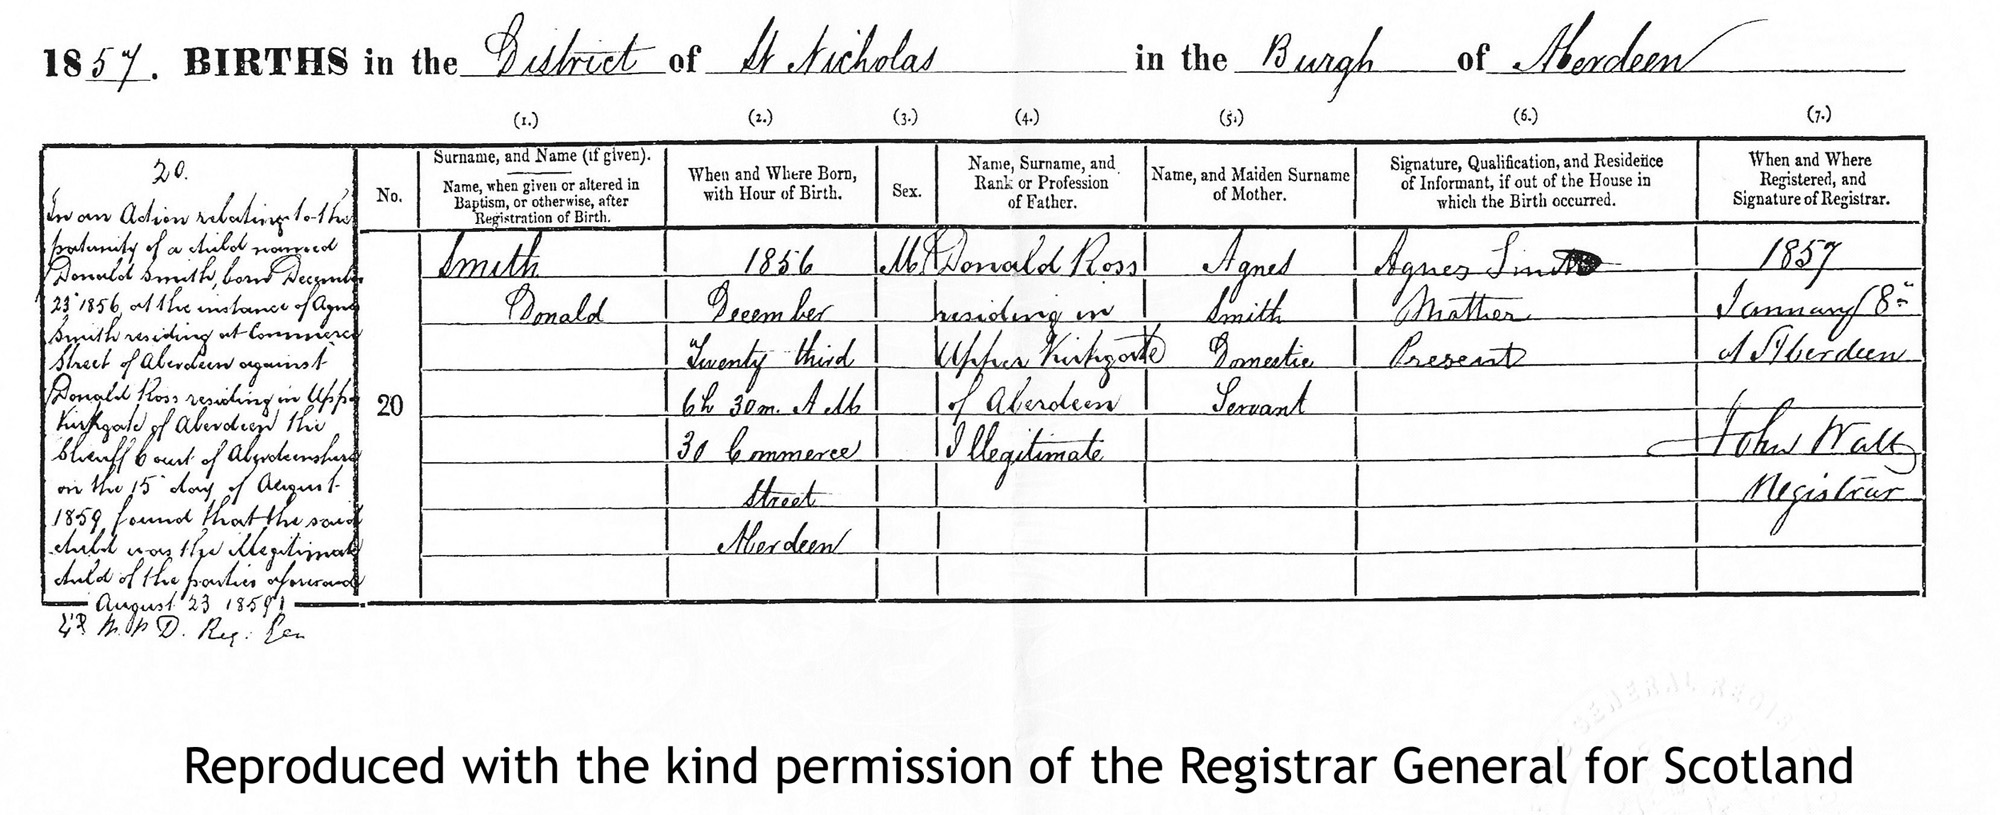 1857. BIRTHS in the District of St Nicholas in the Burgh of Aberdeen
(1.) (2.) (3.) (4.) (5.) (6.) (7.)
20.
In an Action relating to the
paternity of a child named
Donald Smith, born December
23" 1856, at the instance of Agnes
Smith residing at Commerce
Street of Aberdeen against
Donald Ross residing in Upper
Kirkgate of Aberdeen the
Sheriff Court of Aberdeenshire
on the 15" day of August
1859 found that the said
child was the illegitimate
child of the parties aforesaid
August 23 1859
D. Reg: Gen
No.
Surname, and Name (if given).
Name, when given or altered in
Baptism, or otherwise, after
Registration of Birth.
When and Where Born,
with Hour of Birth.
Sex.
Name, Surname, and
Rank or Profession
of Father.
Name, and Maiden Surname
of Mother.
Signature, Qualification, and Residence
of Informant, if out of the House in
which the Birth occurred.
When and Where
Registered, and
Signature of Registrar.
20
Smith
Donald
1856
December
Twenty third
6h 30m. A M
30 Commerce
Street
Aberdeen
M
Donald Ross
residing in
Upper Kirkgate
of Aberdeen
Illegitimate
Agnes
Smith
Domestic
Servant
Agnes Smith
Mother
Present
1857
January 8"
At Aberdeen
John Watt
Registrar
Reproduced with the kind permission of the Registrar General for Scotland